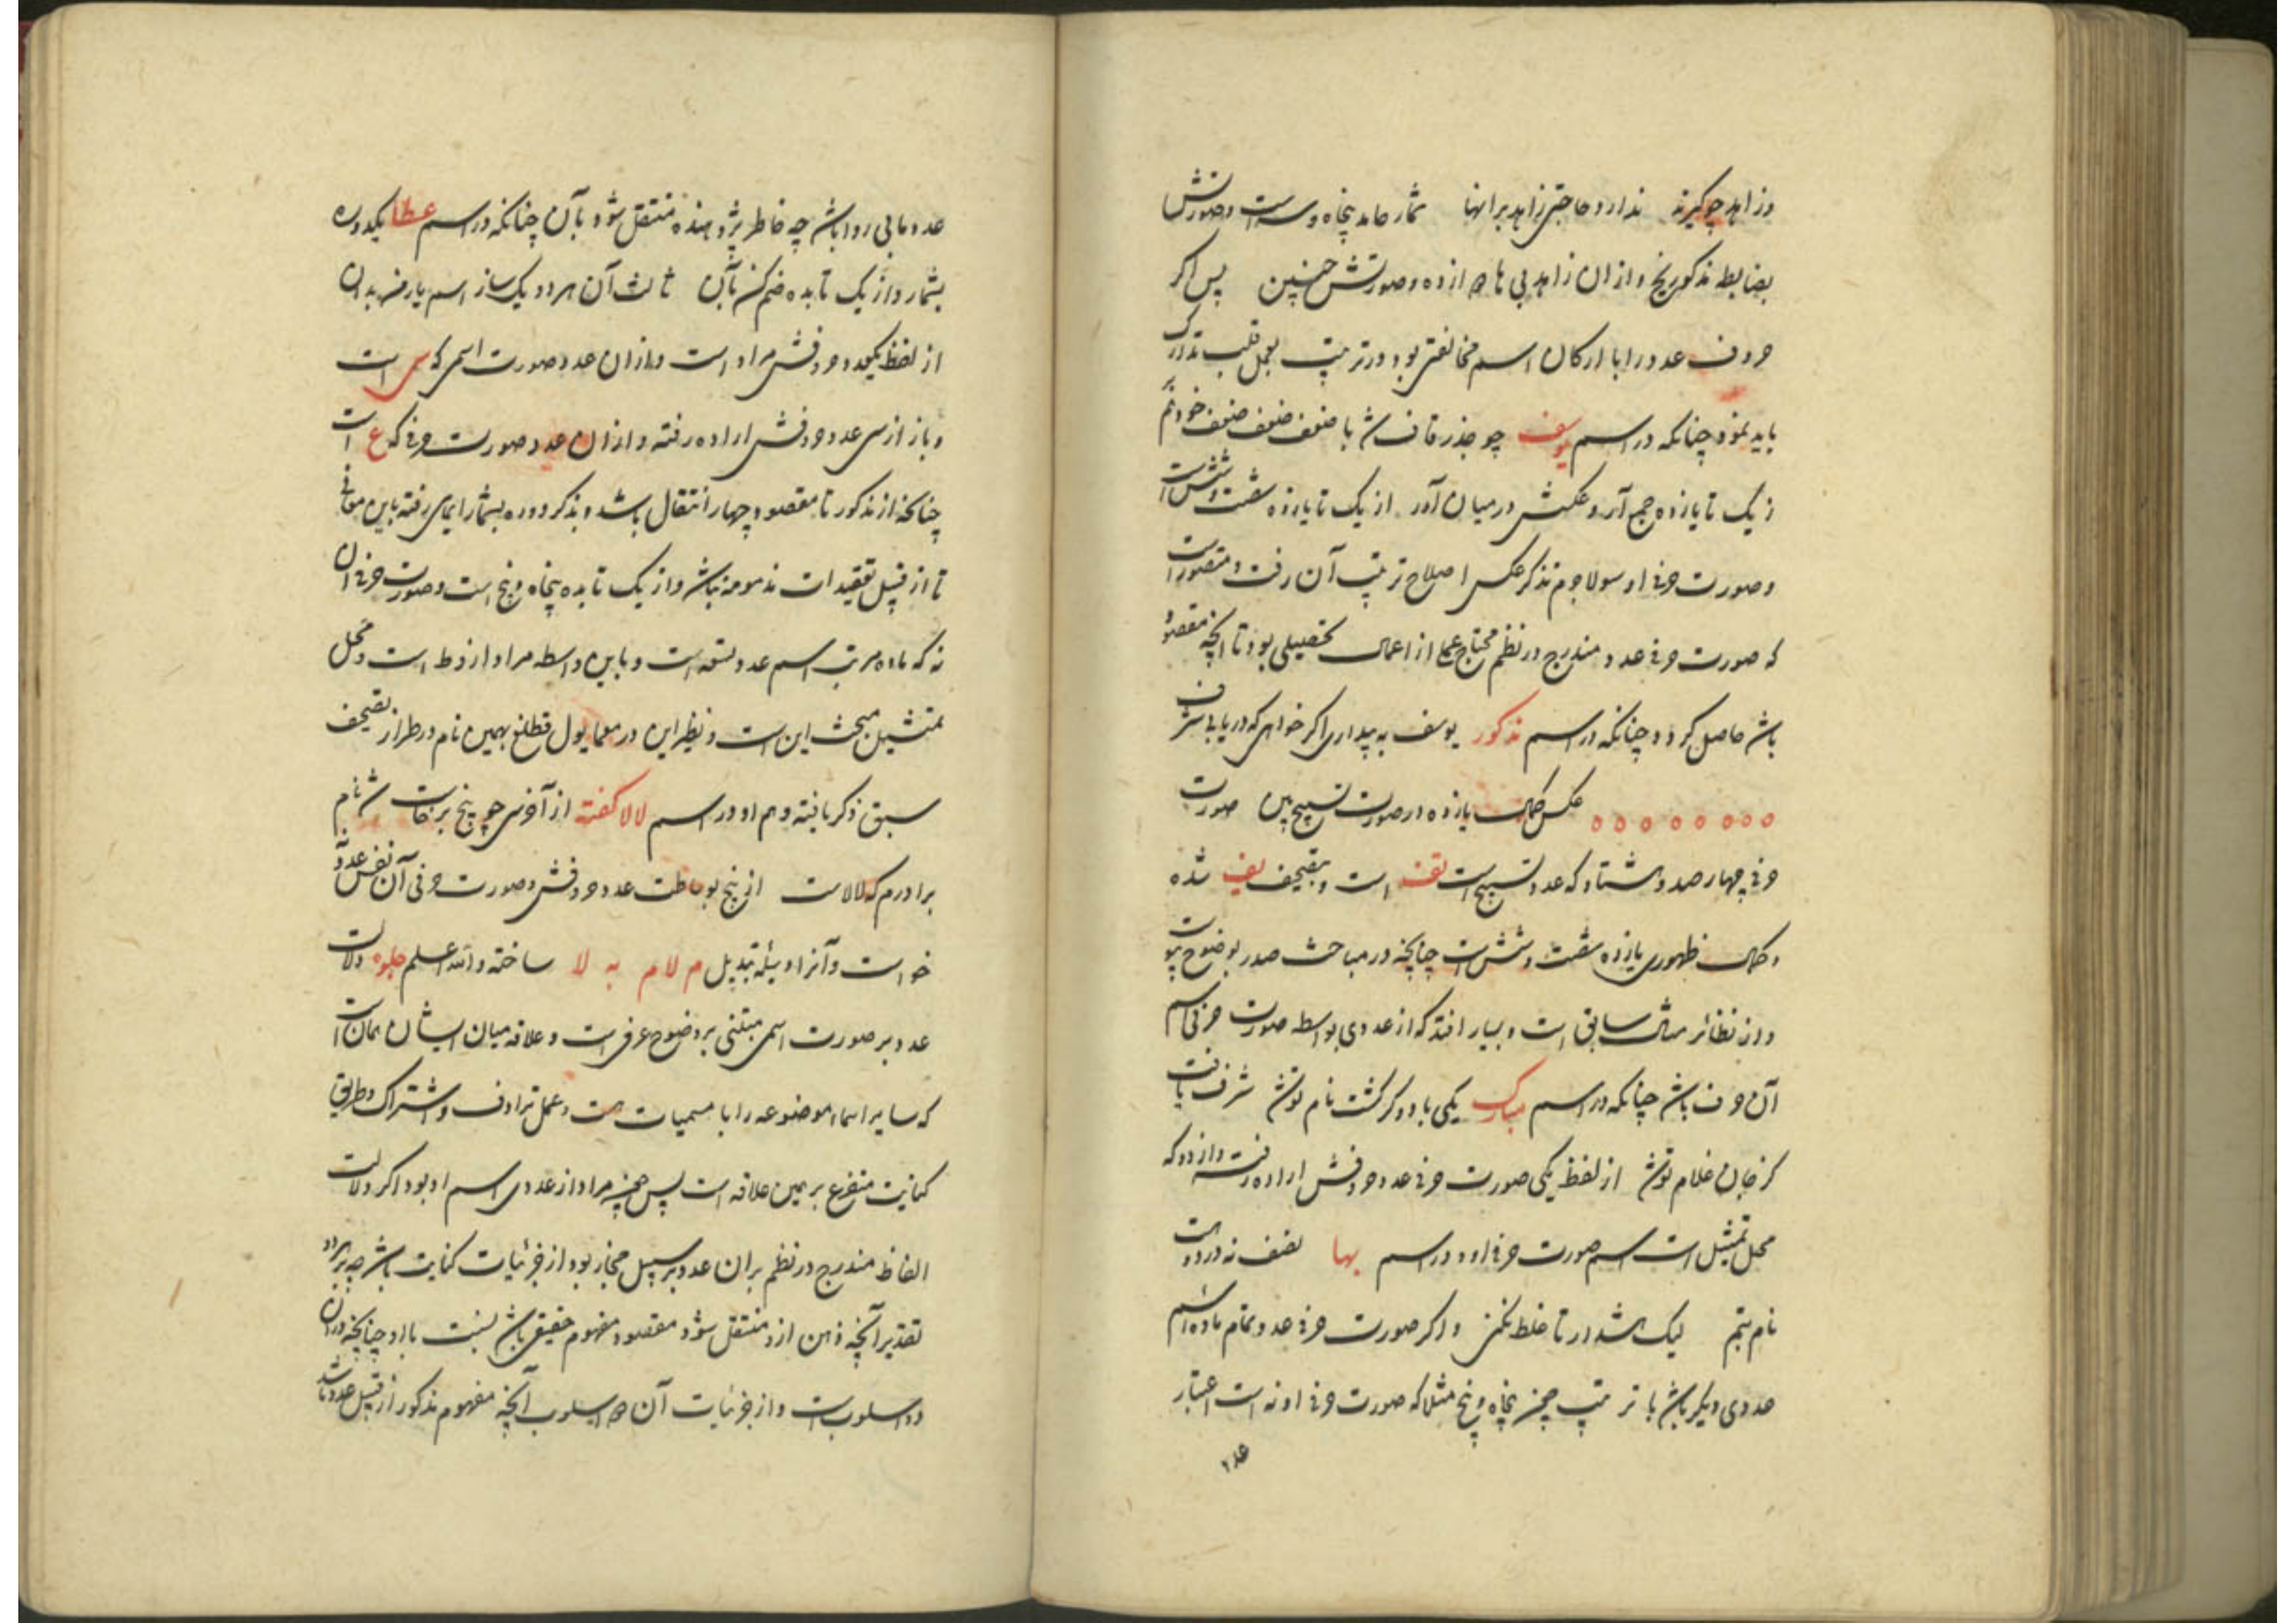 وز زاهد چو گیرند ندارد حاجتی زاهد برانها شمار حامد پنجاه و سه است و صورتش
بضابطه مذکور نج و از ان زاهد بی ها ده و صورتش چنین پس اگر
حروف عدد را با ارکان اسم مخالفتی بود در ترتیب بعمل قلب تدارک
باید نمود چنانکه در اسم یوسف چو جذر قاف شد با ضعف ضعف ضعف خود ضم
ز یک تا یازده جمع آر و عکسش در میان آور از یک تا یازده شصت و شش است
و صورت حرفی او سو لاجرم بذکر عکس اصلاح ترتیب آن رفت و متصور است
که صورت حرفی عدد مندرج در نظم محتاج عملی از اعمال تحصیلی بود تا آنچه مقصود
باشد حاصل گردد چنانکه در اسم مذکور یوسف به بیداری اگر خواهی که دریابی شرف
ه ه ه ه ه ه ه ه عکس کمال یازده در صورت تسبیح بین صورت
حرفی چهار صد و هشتاد که عدد تسبیح است تف است و بتصحیف یف شده
و کمال ظهوری یازده شصت و شش است چنانچه در مباحث صدر بوضوح پیوست
و از نظائر مثال سابق است و بسیار افتد که از عددی بواسطه صورت حرفی اسم
آن حرف باشد چنانکه در اسم مبارک یکی با دو گر گشت نام تو شد شرف یافت
کز جان غلام تو شد از لفظ یکی صورت حرفی عدد حروفش اراده رفته و از دو که
محل تمثیل است اسم صورت حرفی او و در اسم بها نصف نه در دو است
نام بتم لیک هشدار تا غلط نکنی و اگر صورت حرفی عدد تمام ماده اسم
عددی دیگر باشد با ترتیب چون پنجاه و پنج مثلا که صورت حرفی او نه است اعتبار
عدد
عدد مابی روا باشد چه خاطر پژوهنده منتقل شود بآن چنانکه در اسم عطا یکدوره
بشمار و از یک تا بده ضم کن بآن ثالث آن هر دو یک ساز اسم یار من بدان
از لفظ یکعدد حروفش مراد است و از ان عدد صورت اسمی که سی است
و باز از سی عدد حروفش اراده رفته و از ان عدد صورت حرفی که ع است
چنانچه از مذکور تا مقصود چهار انتقال باشد و بذکر دوره بشمار ایمای رفته باین معانی
تا از قبیل تعقیدات مذمومه نباشد و از یک تا بده پنجاه و پنج است و صورت حرفی ان
نه که ماده مرتب اسم عدد تسعه است و باین واسطه مراد از و ط است و محل
تمثیل مبحث این است و نظیر این در معما یول قطلغ بهمین نام در طراز تصحیف
سبق ذکر یافته و هم او در اسم لالا گفته از آخر سی چو پنج برخاست شد نام
برادرم که لالاست از پنج بوساطت عدد حروفش و صورت حرفی آن نفس عدد را
خواست و آنرا وسیله تبدیل م لام به لا ساخته والله اعلم جلوه دلالت
عدد بر صورت اسمی مبتنی بر وضوح عرفی است و علاقه میان ایشان همان است
که سایر اسماء موضوعه را با مسمیات هست و عمل ترادف و اشتراک و طریق
کنایت متفرع بر همین علاقه است پس هرچه مراد از عددی اسم او بود اگر دلالت
الفاظ مندرج در نظم بران عدد بر سبیل مجاز بود از جزئیات کنایت باشد چه بر هر دو
تقدیر آنچه ذهن ازو منتقل شود مقصود مفهوم حقیقی باشد نسبت با او چنانچه در ان
دو اسلوب است و از جزئیات آن دو اسلوب آنچه مفهوم مذکور از قبیل عدد باشد